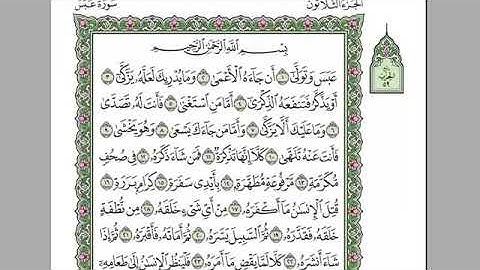 الجزء الثلاثون
سورة عبس
بِسْمِ اللَّهِ الرَّحْمَٰنِ الرَّحِيمِ
عَبَسَ وَتَوَلَّىٰٓ ١ أَن جَآءَهُ ٱلْأَعْمَىٰ ٢ وَمَا يُدْرِيكَ لَعَلَّهُۥ يَزَّكَّىٰٓ ٣
أَوْ يَذَّكَّرُ فَتَنفَعَهُ ٱلذِّكْرَىٰٓ ٤ أَمَّا مَنِ ٱسْتَغْنَىٰ ٥ فَأَنتَ لَهُۥ تَصَدَّىٰ
٦ وَمَا عَلَيْكَ أَلَّا يَزَّكَّىٰ ٧ وَأَمَّا مَن جَآءَكَ يَسْعَىٰ ٨ وَهُوَ يَخْشَىٰ ٩
فَأَنتَ عَنْهُ تَلَهَّىٰ ١٠ كَلَّآ إِنَّهَا تَذْكِرَةٌ ١١ فَمَن شَآءَ ذَكَرَهُۥ ١٢ فِى صُحُفٍ
مُّكَرَّمَةٍ ١٣ مَّرْفُوعَةٍ مُّطَهَّرَةٍۭ ١٤ بِأَيْدِى سَفَرَةٍ ١٥ كِرَامٍۭ بَرَرَةٍ ١٦
قُتِلَ ٱلْإِنسَٰنُ مَآ أَكْفَرَهُۥ ١٧ مِنْ أَىِّ شَىْءٍ خَلَقَهُۥ ١٨ مِن نُّطْفَةٍ
خَلَقَهُۥ فَقَدَّرَهُۥ ١٩ ثُمَّ ٱلسَّبِيلَ يَسَّرَهُۥ ٢٠ ثُمَّ أَمَاتَهُۥ فَأَقْبَرَهُۥ ٢١ ثُمَّ إِذَا
شَآءَ أَنشَرَهُۥ ٢٢ كَلَّا لَمَّا يَقْضِ مَآ أَمَرَهُۥ ٢٣ فَلْيَنظُرِ ٱلْإِنسَٰنُ إِلَىٰ طَعَامِهِۦٓ